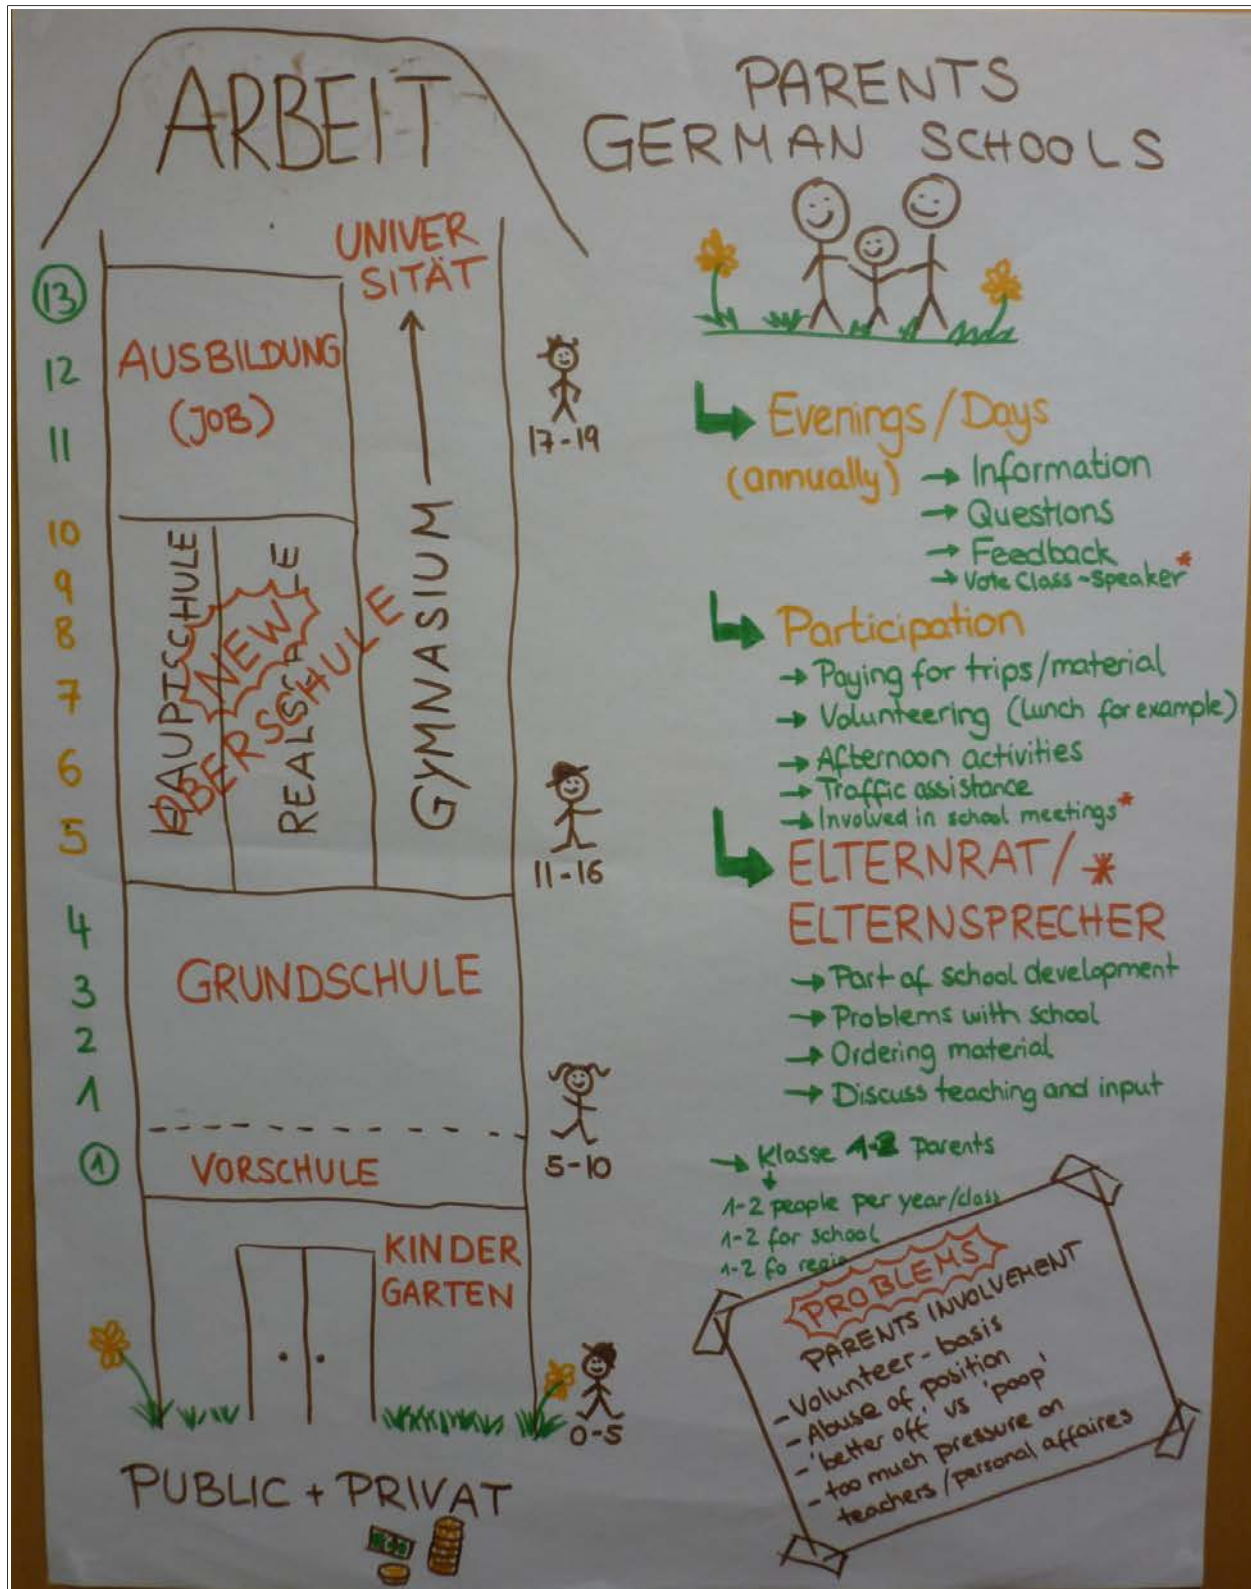 ARBEIT
UNIVER
SITÄT
13
AUSBILDUNG
(JOB)
12
11
17-19
10
9
8
7
6
5
HAUPTSCHULE
REALSCHULE
NEW
OBERSCHULE
GYMNASIUM
11-16
4
3
2
1
GRUNDSCHULE
5-10
1
VORSCHULE
KINDER
GARTEN
0-5
PUBLIC + PRIVAT
PARENTS
GERMAN SCHOOLS
Evenings/Days
(annually) → Information
→ Questions
→ Feedback
→ Vote Class-Speaker*
Participation
→ Paying for trips/material
→ Volunteering (lunch for example)
→ Afternoon activities
→ Traffic assistance
→ Involved in school meetings*
ELTERNRAT/*
ELTERNSPRECHER
→ Part of school development
→ Problems with school
→ Ordering material
→ Discuss teaching and input
→ Klasse 1-2 parents
1-2 people per year/class
1-2 for school
1-2 fo regio
PROBLEMS
PARENTS INVOLVEMENT
- Volunteer-basis
- Abuse of position
- 'better off' vs 'poop'
- too much pressure on
teachers/personal affaires